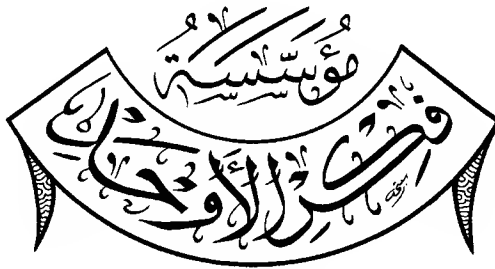 مُؤَسَّسَةُ
فِكْرِ الأَوْحَدِ